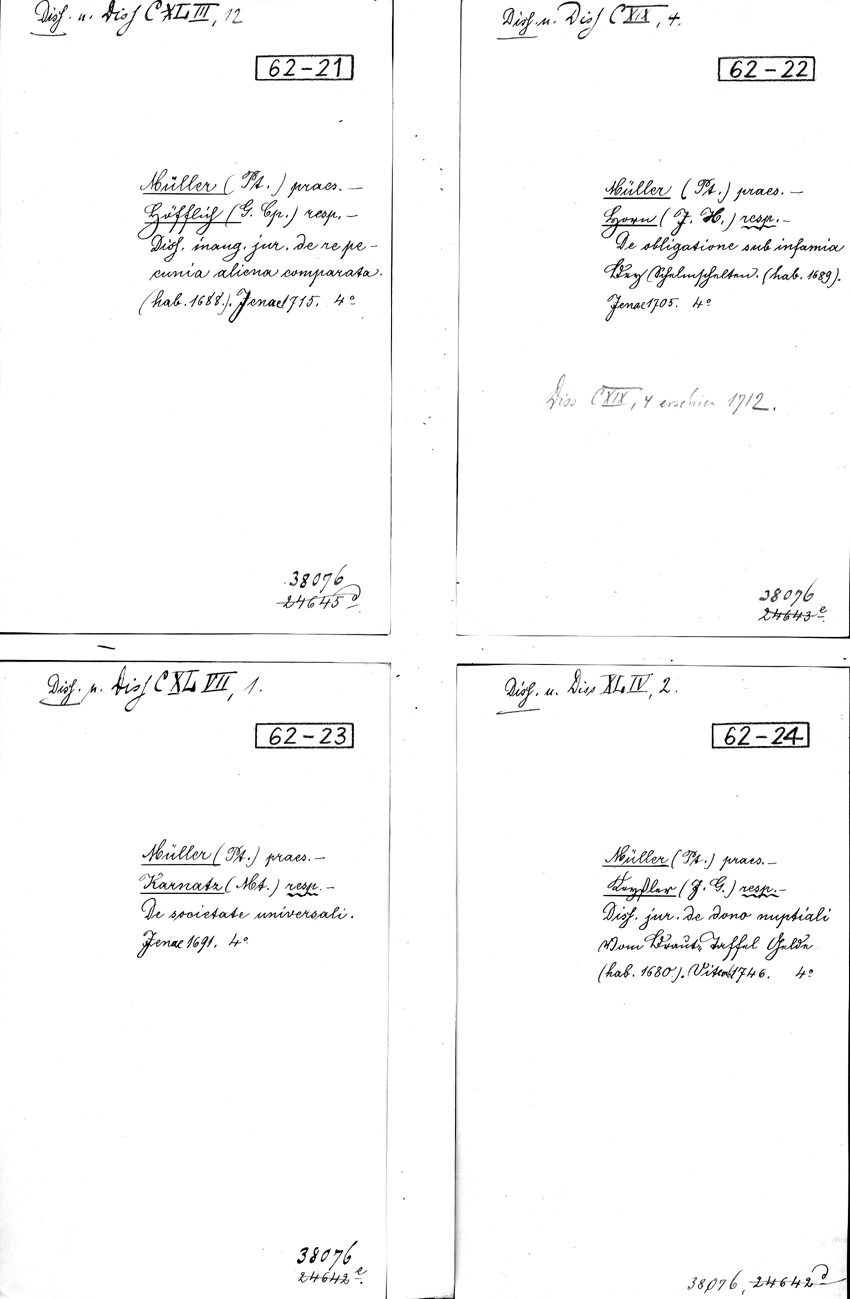 Diss. u. Diss CXLIII, 12
62-21
Müller (Pt.) praes. —
Höfflich (G. Cp.) resp. —
Diss. inaug. jur. de re pe-
cunia aliena comparata.
(hab. 1688.). Jenae 1715. 4°
38076
24645 d
Diss. u. Diss CXIX, 4.
62-22
Müller (Pt.) praes. —
Horn (J. H.) resp. —
De obligatione sub infamia
Bey Schelmschelten. (hab. 1689).
Jenae 1705. 4°
Diss CXIX, 4 erschien 1712.
38076
24643 e
Diss. u. Diss CXLVII, 1.
62-23
Müller (Pt.) praes. —
Karnatz (Mt.) resp. —
De societate universali.
Jenae 1691. 4°
38076
24642 e.
Diss. u. Diss XLIV, 2.
62-24
Müller (Pt.) praes. —
Keyßler (J. G.) resp. —
Diss. jur. de dono nuptiali
Vom Braut, Taffel Gelde
(hab. 1680). Vitenb 1746. 4°
38076, 24642 d